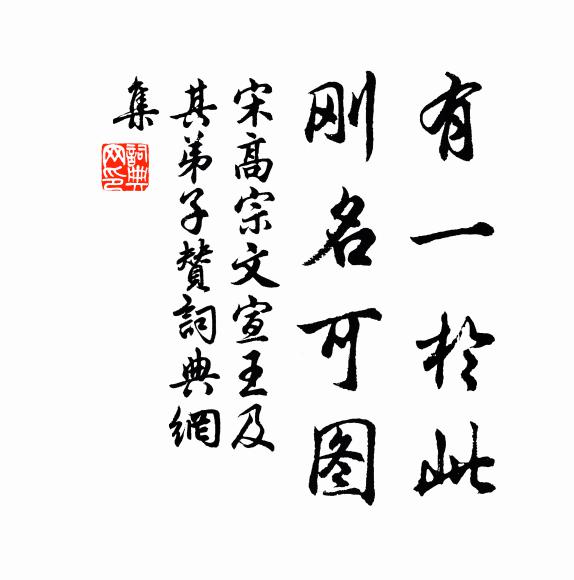 有一於此
刚名可图
宋高宗文宣王及
其弟子赞詞典網
集
詞典網印